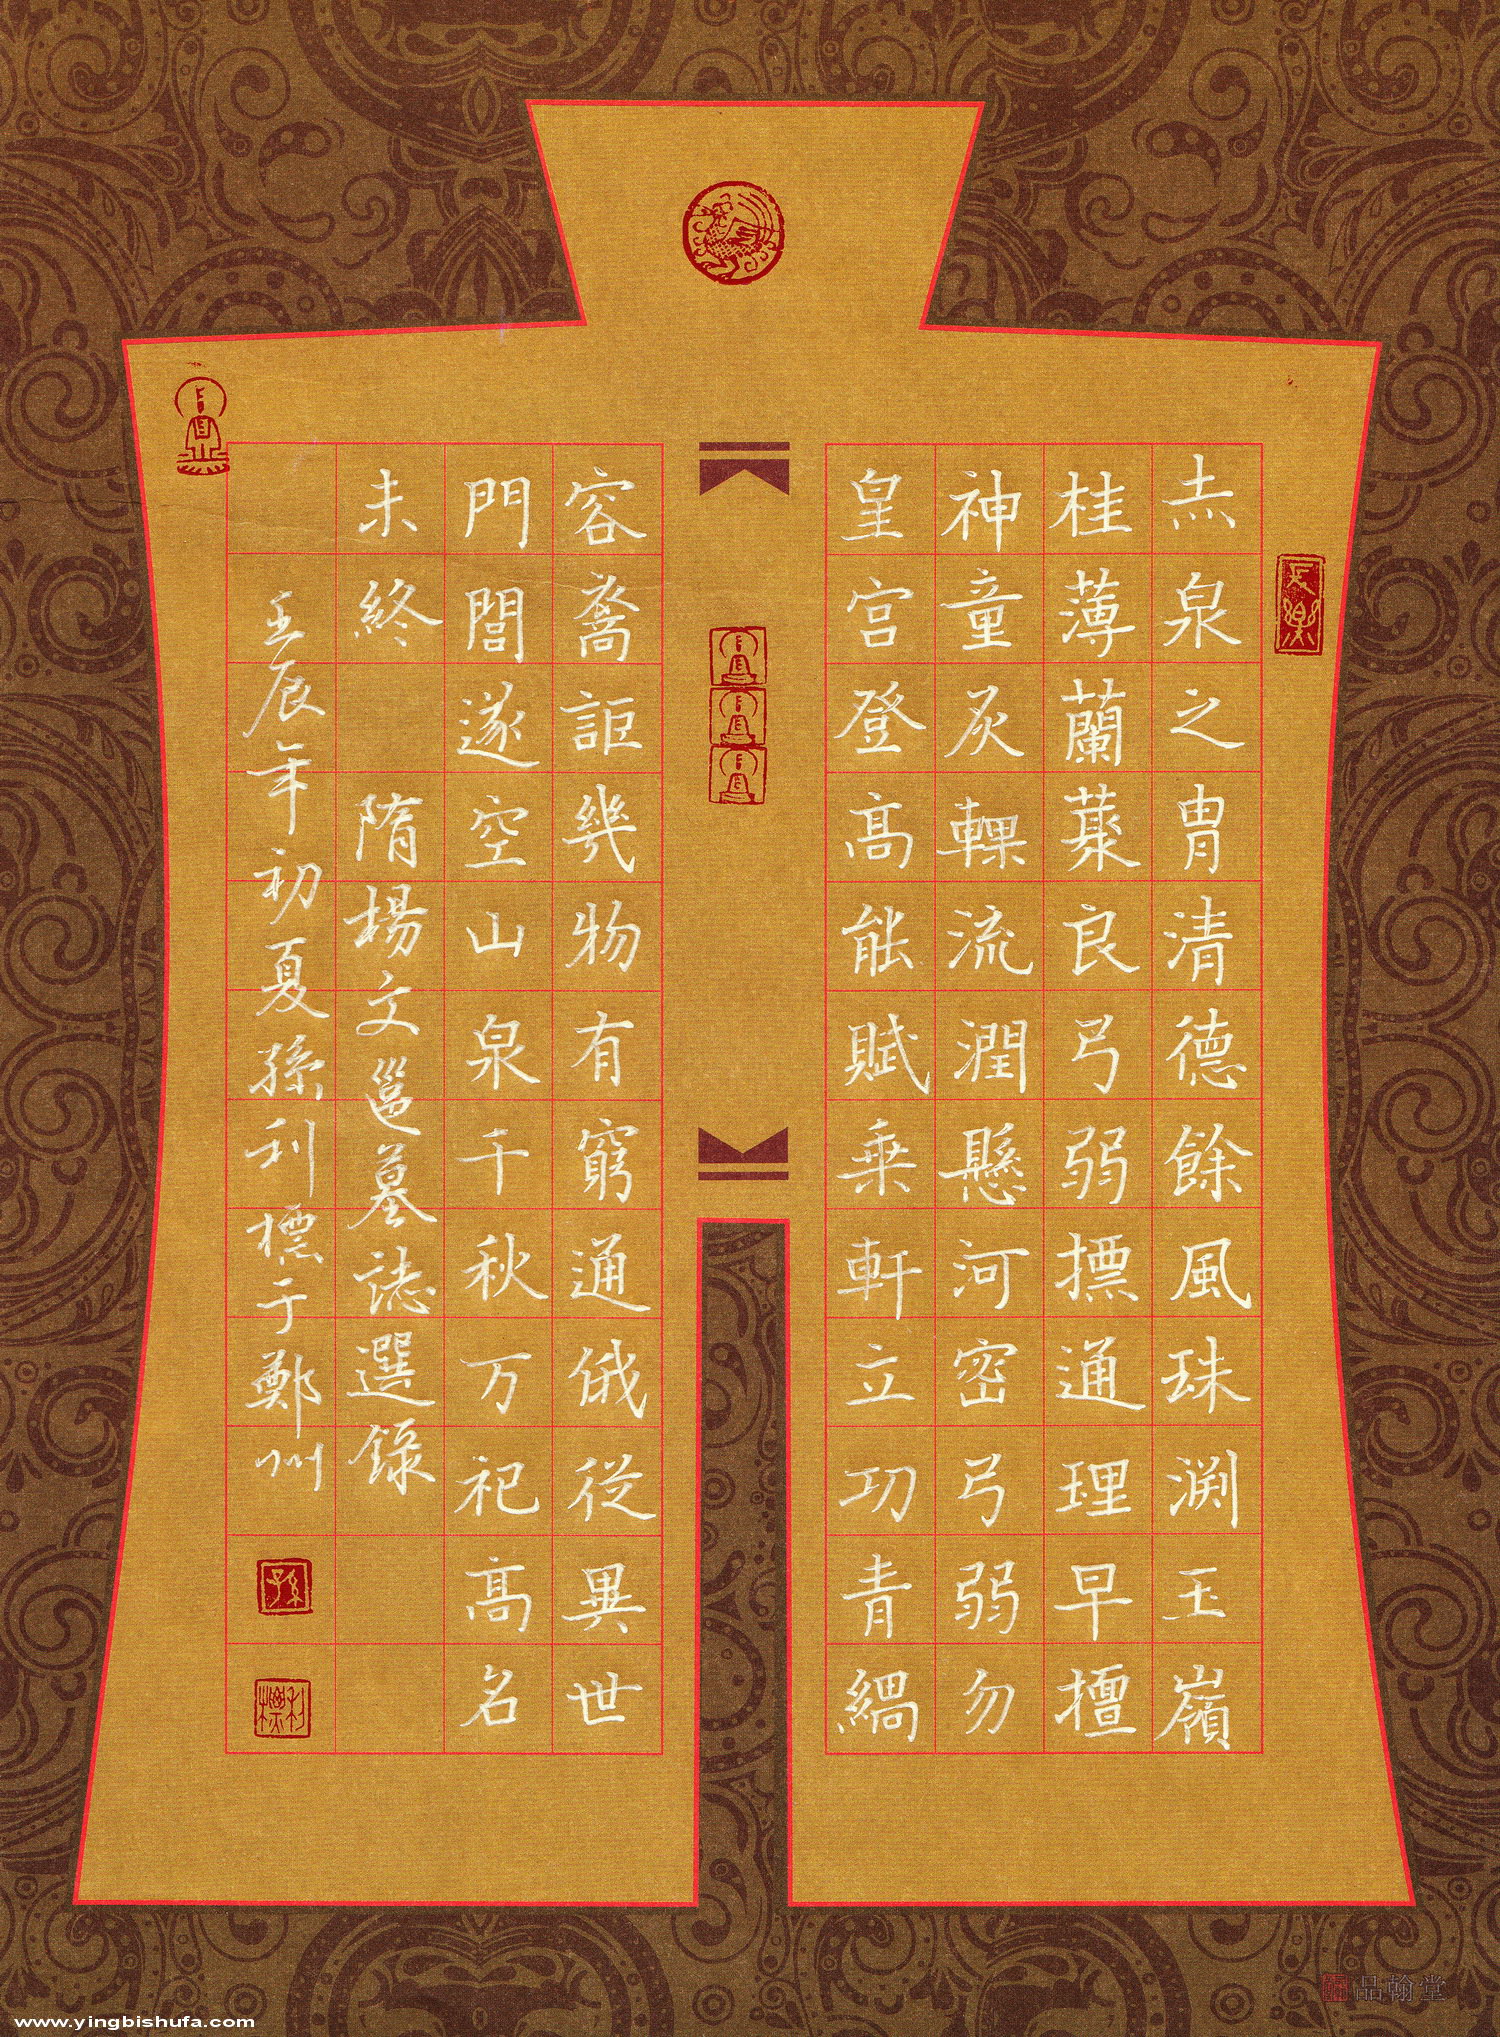 赤泉之胄清德餘風珠淵玉嶺
桂薄蘭藂良弓弱摽通理早擅
神童灰輠流潤懸河密弓弱勿
皇宫登髙能賦乗軒立功青緺
容裔詎幾物有窮通俄從異世
門閭遂空山泉千秋万祀髙名
未終 隋楊文邕墓誌選錄
壬辰年初夏孫利標于鄭州
長樂
孫
利標
品翰堂
www.yingbishufa.com